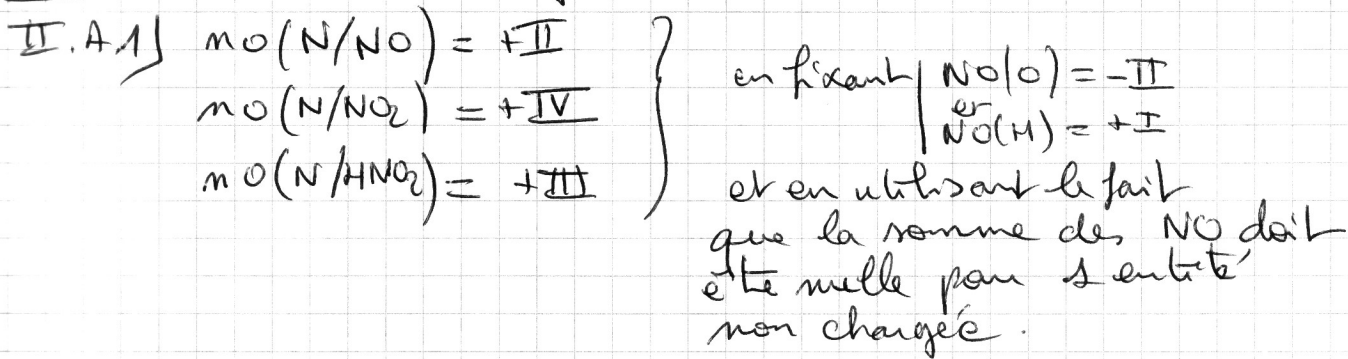 II.A.1) no(N/NO) = +II
no(N/NO₂) = +IV
no(N/HNO₂) = +III
en fixant NO(O) = -II
et
NO(H) = +I
et en utilisant le fait
que la somme des NO doit
être nulle pour 1 entité
non chargée.